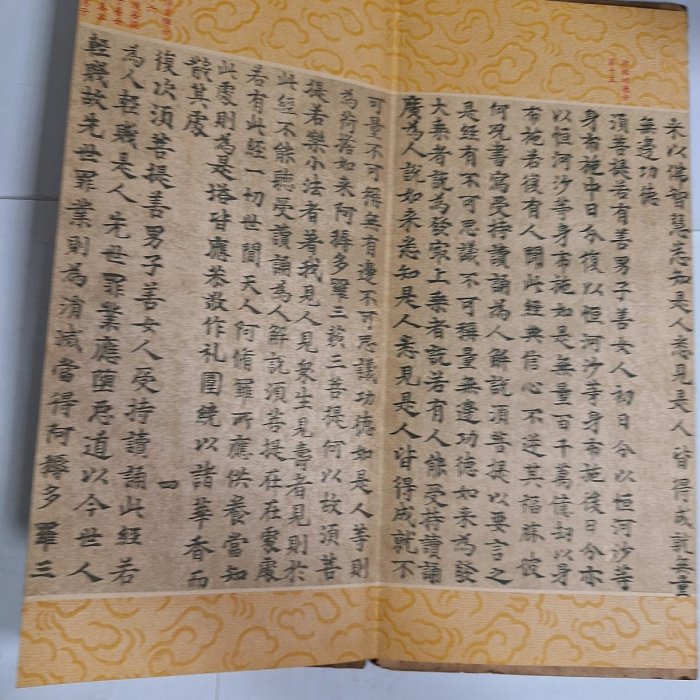 第十五
来以佛智慧悉知是人悉見是人皆得成就無量
無邊功德
須菩提若有善男子善女人初日分以恒河沙等
身布施中日分復以恒河沙等身布施後日分亦
以恒河沙等身布施如是無量百千萬億劫以身
布施若復有人聞此經典信心不逆其福勝彼
何况書寫受持讀誦為人解說須菩提以要言之
是經有不可思議不可稱量無邊功德如来為發
大乘者說為發最上乘者說若有人能受持讀誦
廣為人說如来悉知是人悉見是人皆得成就不
可量不可稱無有邊不可思議功德如是人等則
為荷擔如来阿耨多羅三藐三菩提何以故須菩
提若樂小法者著我見人見眾生見壽者見則於
此經不能聽受讀誦為人解說須菩提在在處處
若有此經一切世間天人阿脩羅所應供養當知
此處則為是塔皆應恭敬作礼圍繞以諸華香而
散其處
復次須菩提善男子善女人受持讀誦此經若
為人輕賤是人先世罪業應墮惡道以今世人
輕賤故先世罪業則為消滅當得阿耨多羅三